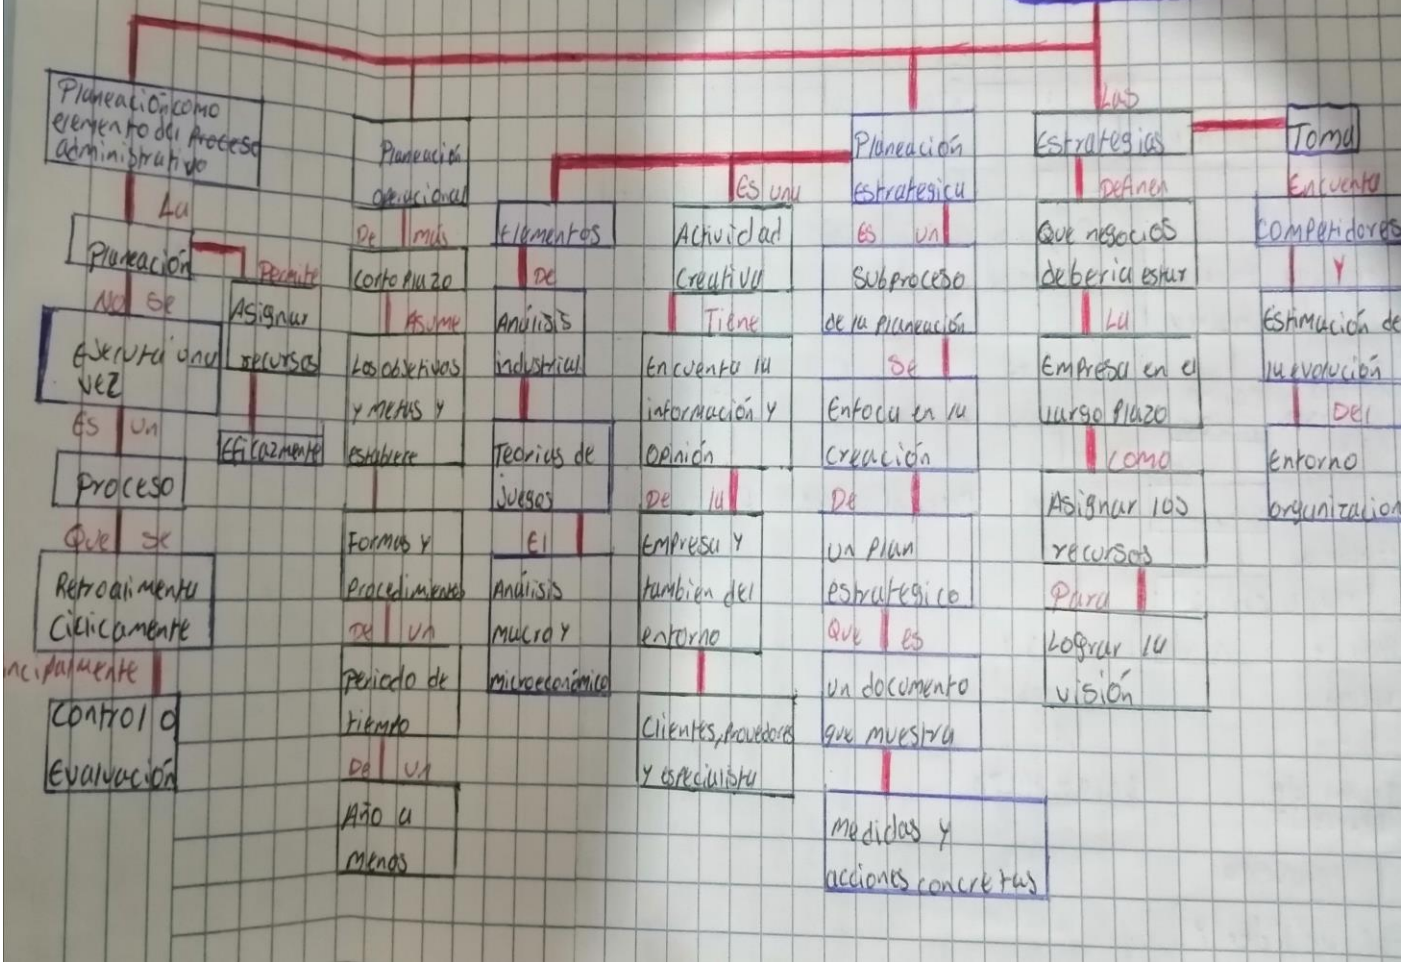 Planeación como
elemento del Proceso
administrativo
La
Planeación
Permite
Asignar
recursos
Eficazmente
No se
una
vez
Es un
Proceso
Que se
Retroalimenta
Ciclicamente
Control o
Evaluación
Planeación
operacional
De más
corto plazo
Asume
Los objetivos
y metas y
establece
Formas y
Procedimientos
De un
Periodo de
tiempo
De un
Año a
menos
Planeación
estrategica
Elementos
De
Análisis
industrial
Teorias de
juegos
El
Análisis
macro y
microeconómico
Es una
Actividad
Creativa
Tiene
Encuenta la
información y
Opinión
De la
Empresa y
tambien del
entorno
Clientes, provedores
y especialista
Es un
subproceso
de la planeación
Se
Enfoca en la
creación
De
un Plan
estrategico
Que es
un documento
que muestra
medidas y
acciones concretas
Las
Estrategias
Definen
Que negocios
deberia estar
La
Empresa en el
largo plazo
Como
Asignar los
recursos
Para
Lograr la
visión
Toma
Encuenta
Competidores
Y
Estimación de
la evolución
Del
Entorno
organizacion